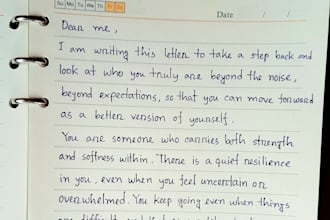 Su Mo Tu We Th Fr Sa
Date / /
Dear me,
I am writing this letter to take a step back and
look at who you truly are beyond the noise,
beyond expectations, so that you can move forward
as a better version of yourself.
You are someone who carries both strength
and softness within. There is a quiet resilience
in you, even when you feel uncertain or
overwhelmed. You keep going even when things